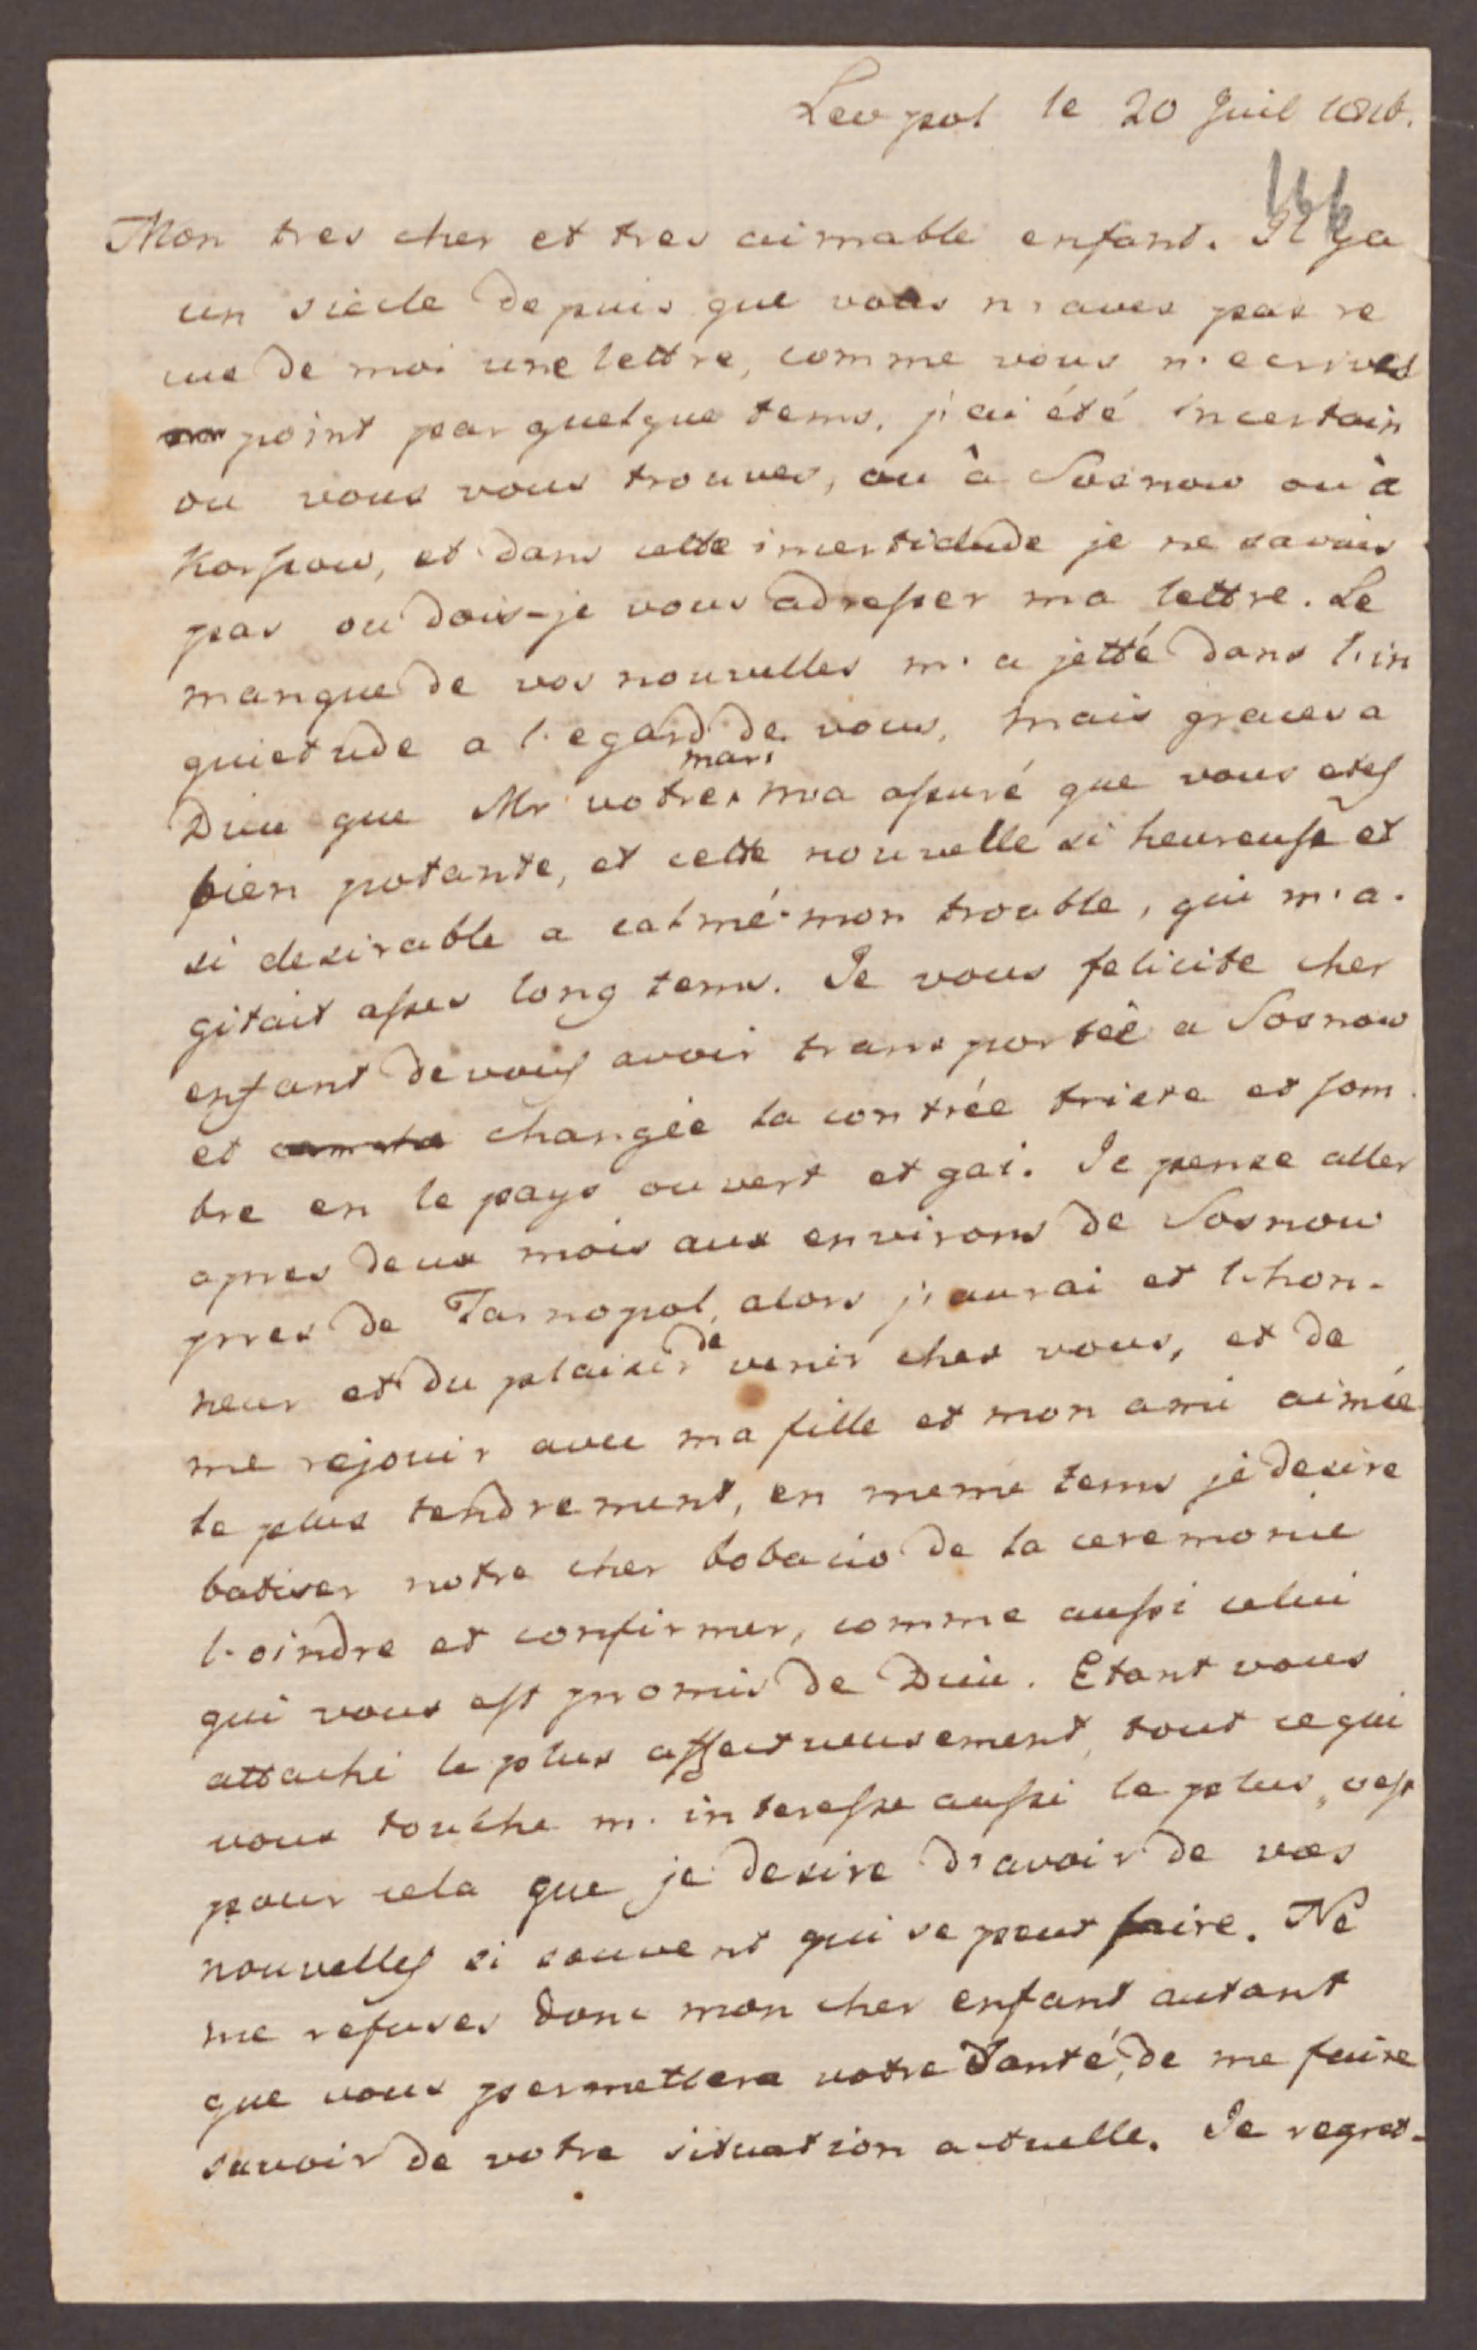 Leopol le 20 Juil 1826.
166
Mon tres cher et tres aimable enfant. Il ya
un siecle depuis que vous n'aves pas re
cue de moi une lettre, comme vous n'ecrives
point par quelque tems, j'ai été incertain
ou vous vous trouves, ou à Sosnow ou à
Korsow, et dans cette incertidude je ne savais
pas ou dois-je vous adresser ma lettre. Le
manque de vos nouvelles m'a jetté dans l'in
quietude a l'egard de vous, mais graces a
Dieu que Mr votre mari m'a assuré que vous etes
bien potante, et cette nouvelle si heureuse et
si desirable a calmé mon trouble, qui m'a.
gitait asses long tems. Je vous felicite cher
enfant de vous avoir transportée a Sosnow
et changée la contrée triste et som
bre en le pays ouvert et gai. Je pense aller
apres deux mois aux environs de Sosnow
pres de Tarnopol, alors j'aurai et l'hon-
neur et du plaisir de venir ches vous, et de
me rejouir avec ma fille et mon ami aimée
le plus tendrement, en meme tems je desire
batiser notre cher bobacio de la ceremonie
l'oindre et confirmer, comme aussi celui
qui vous est promis de Dieu. Etant vous
attaché le plus affectueusement, tout ce qui
vous touche m'interesse aussi le plus, c'est
pour cela que je desire d'avoir de vos
nouvelles si souvent qui se peut faire. Ne
me refuses donc mon cher enfant autant
que vous permettera votre Santé, de me faire
savoir de votre situation actuelle. Je regret-